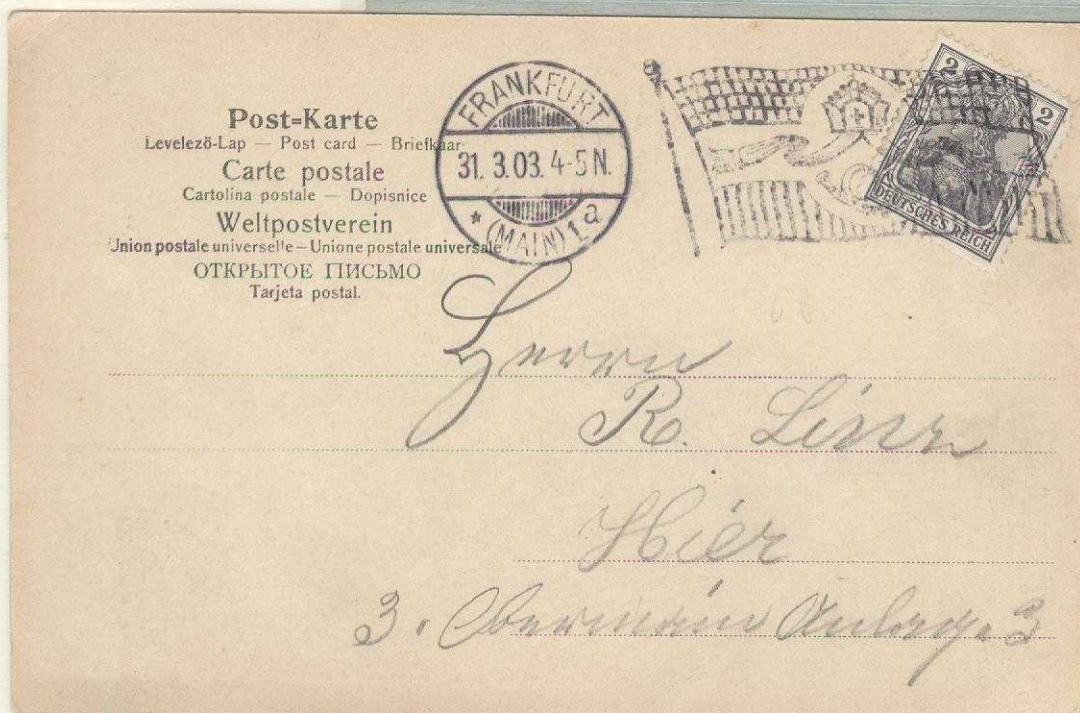 Post=Karte
Levelező-Lap — Post card — Briefkaar
Carte postale
Cartolina postale — Dopisnice
Weltpostverein
Union postale universelle — Unione postale universale
ОТКРЫТОЕ ПИСЬМО
Tarjeta postal.
FRANKFURT
31. 3. 03. 4-5 N.
* (MAIN) 1 a
2 2
DEUTSCHES REICH
Herrn
R. Linz
Hier
3. Obermain Anlage 3